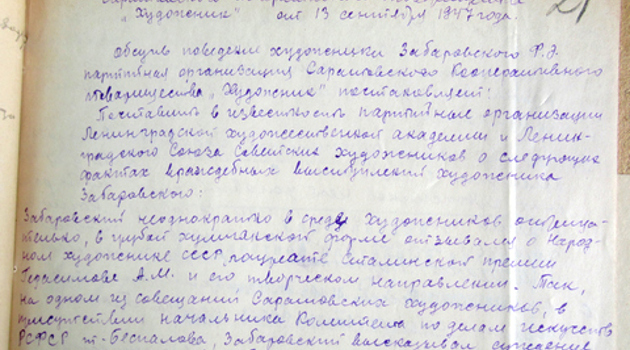 21
"Художник" от 13 сентября 1947 года.
Обсудив поведение художника Забаровского Ф.Э.
партийная организация Саратовского Кооперативного
товарищества "Художник" постановляет:
Поставить в известность партийные организации
Ленинградской художественной академии и Ленин-
градского Союза Советских художников о следующих
фактах враждебных выступлений художника
Забаровского:
Забаровский неоднократно в среде художников отрица-
тельно, в грубой хулиганской форме отзывался о Народ-
ном художнике СССР, лауреате сталинской премии
Герасимове А.М. и его творческом направлении. Так,
на одном из совещаний Саратовских художников, в
присутствии начальника Комитета по делам искусств
РСФСР т. Беспалова, Забаровский высказывал суждение